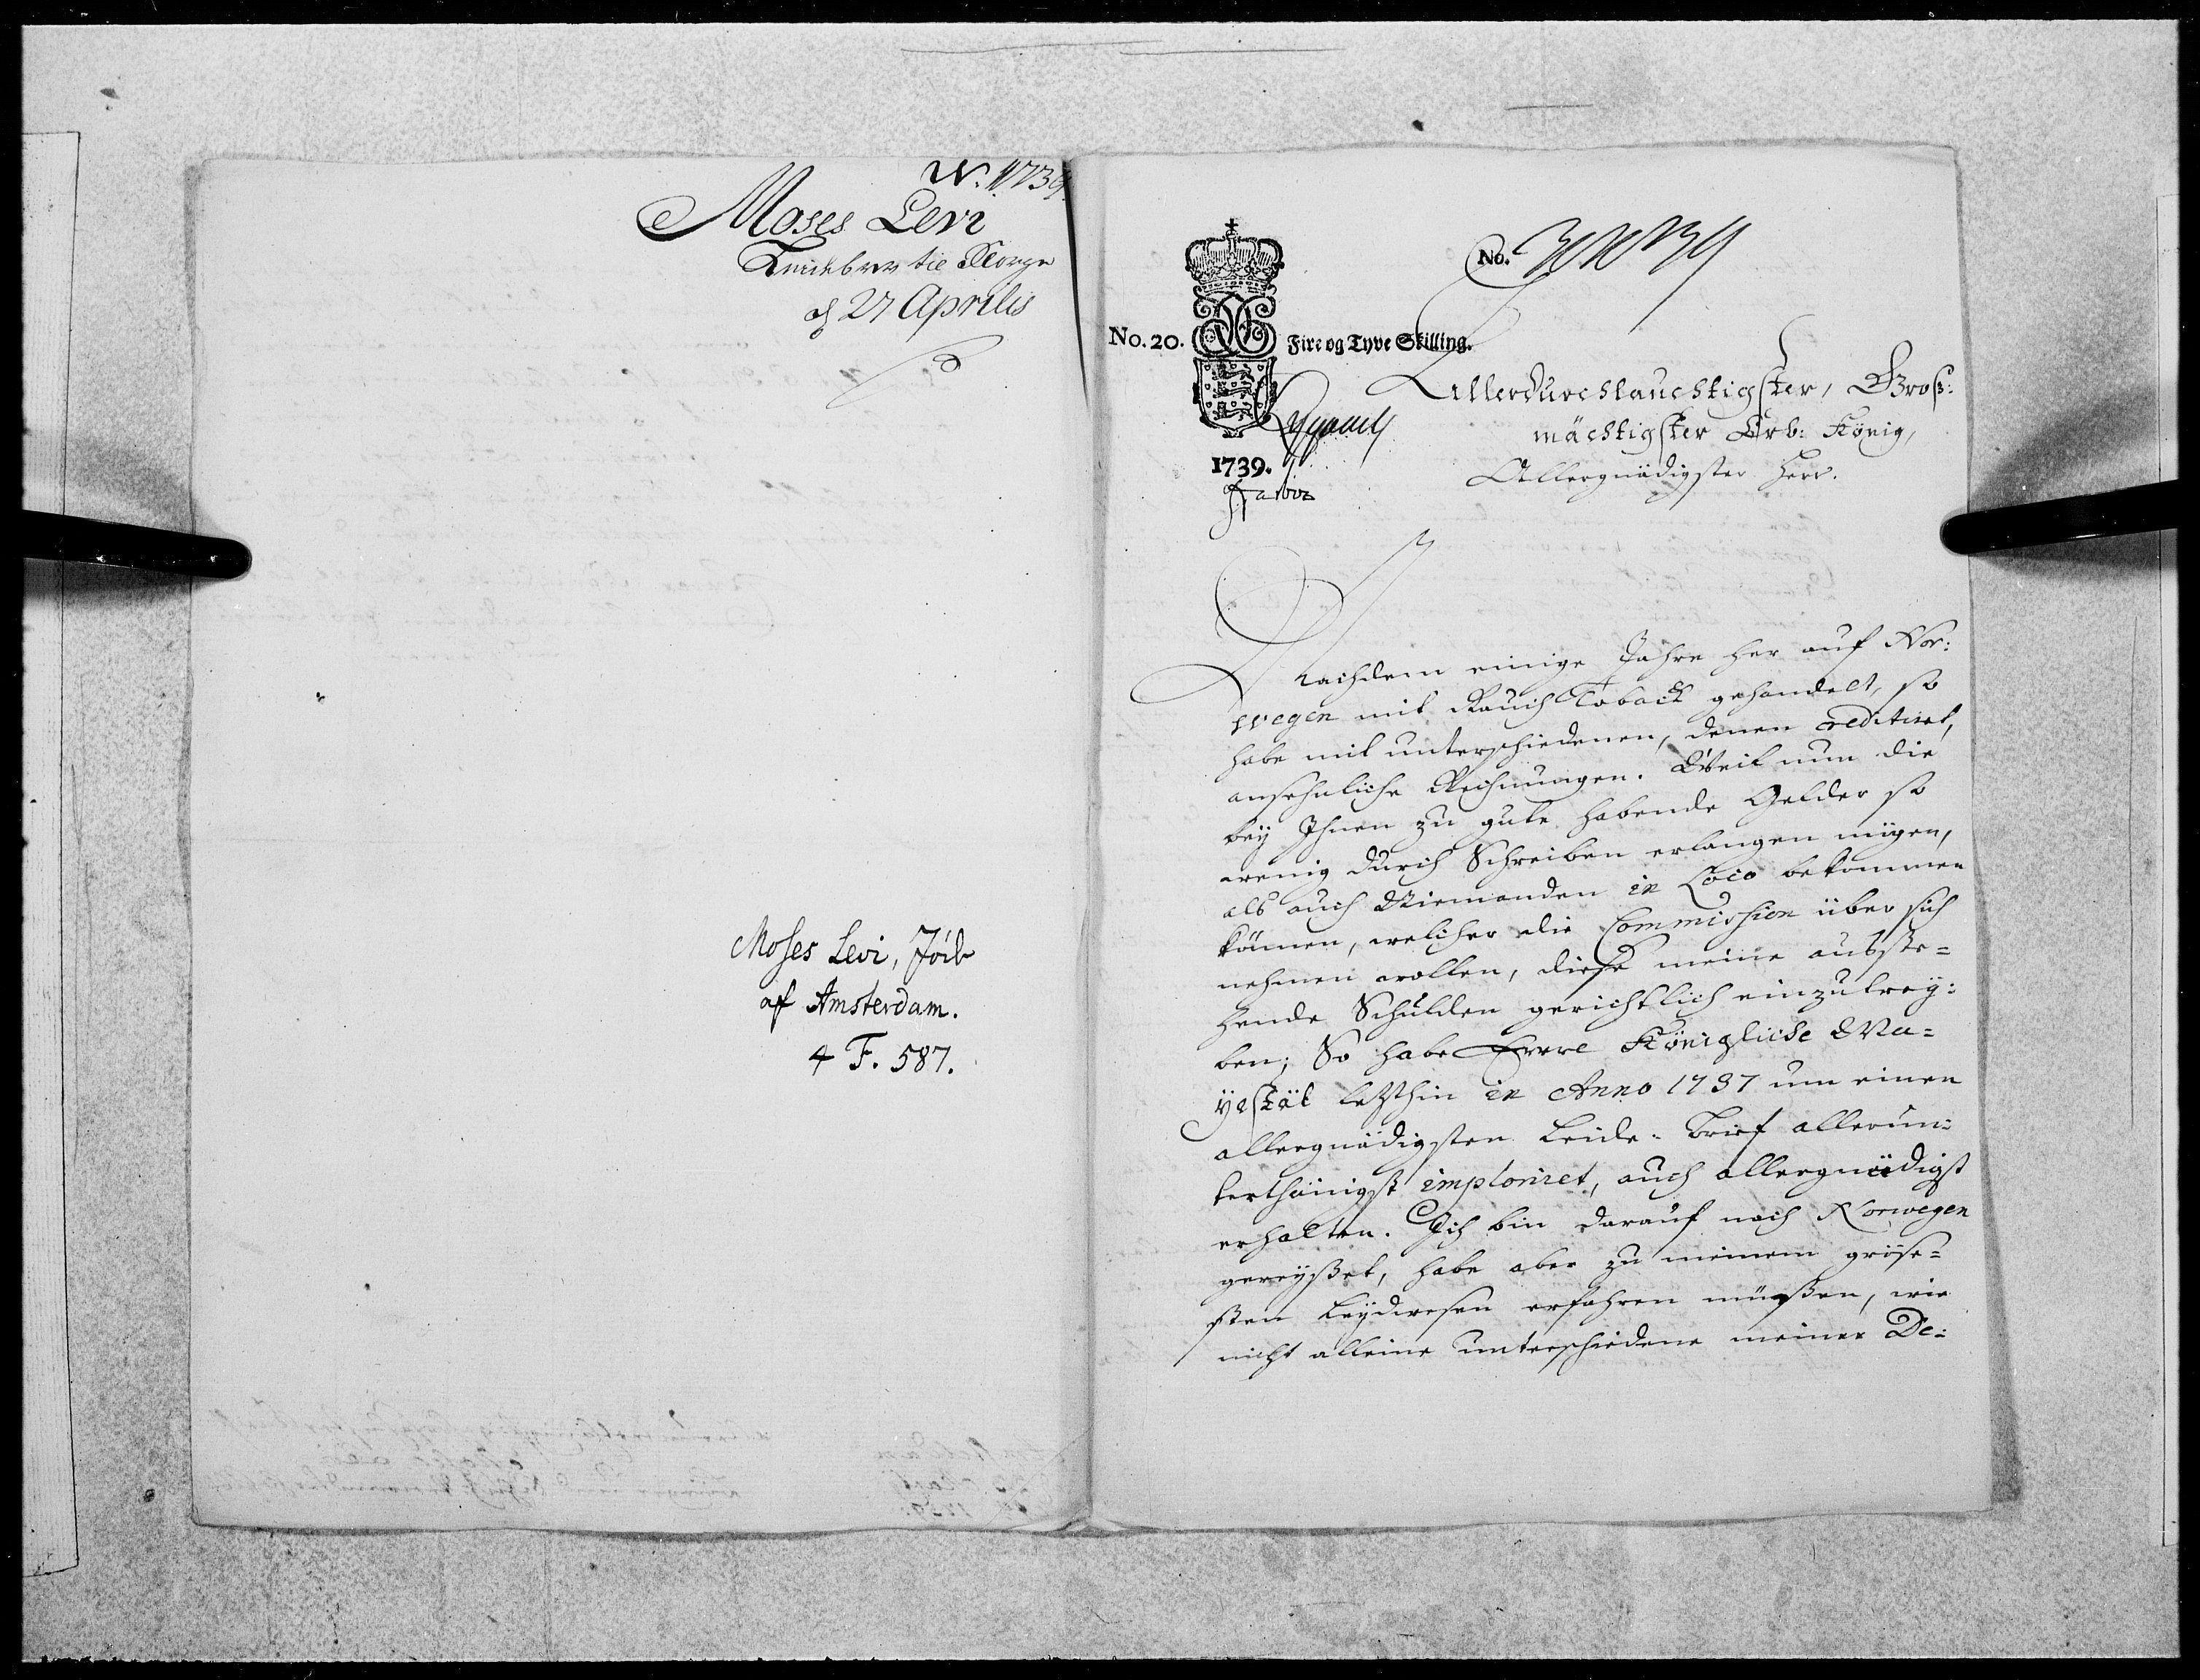 No. 1739.
Moses Levi
Leidebrev til Norge
d 27 Aprilis
Moses Levi, Jöde
af Amsterdam.
4 F. 587.
No.
No. 20.
Fire og Tyve Skilling.
1739.
Allerdurchlauchtigster, Groß:
mächtigster Erb: König,
Allergnädigster Herr.
Nachdem einige Jahre her auf Nor:
wegen mit Rauch Toback gehandelt, so
habe mit unterschiedenen, denen creditiret,
ansehnliche Rechnungen. Weil nun die
beÿ Ihnen zu gute habende Gelder so
wenig durch Schreiben erlangen mögen,
als auch Niemanden in Loco bekommen
können, welcher die Commission über sich
nehmen wollen, diese meine ausste=
hende Schulden gerichtlich einzutrey:
ben; So habe Ewre Königliche Ma=
ÿestät letzthin in Anno 1737 um einen
allergnädigsten Leide-Brief allerun:
terthänigst imploriret, auch allergnädigst
erhalten. Ich bin darauf nach Norwegen
gereÿßet, habe aber zu meinem gröse=
sten Leÿdwesen erfahren müßen, wie
nicht alleine unterschiedene meiner De: